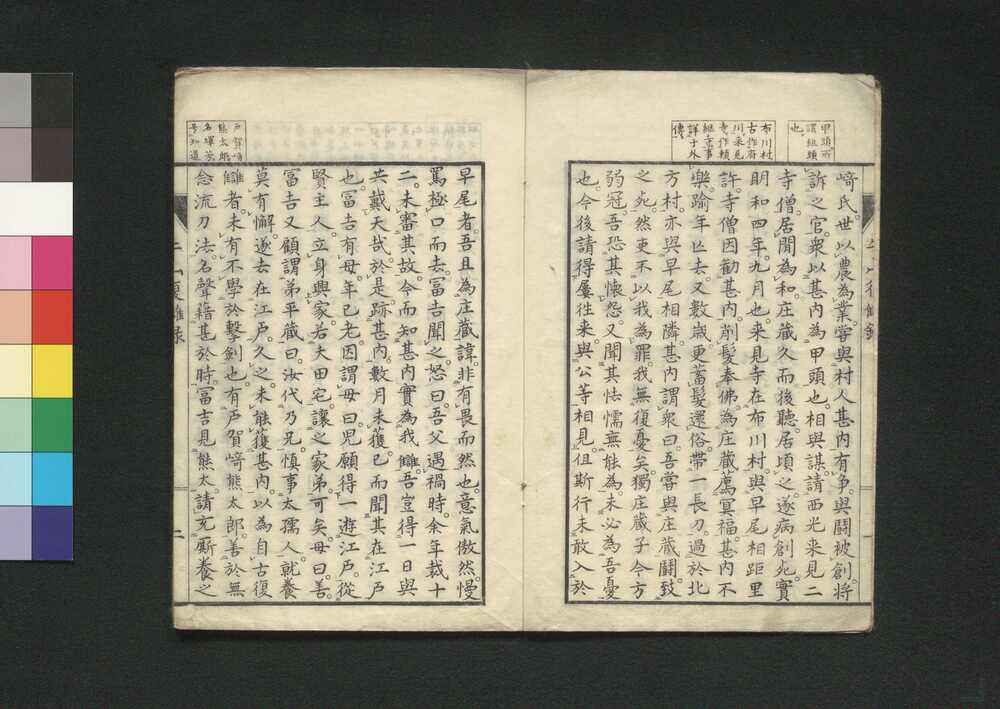 甲頭所
謂組頭
也
﨑氏世以農為業甞與村人甚内有争與鬪被創将
訴之官衆以甚内為甲頭也相與謀請西光来見二
寺僧居間為和庄蔵久而後聽居頃之遂病創死實
明和四年九月也来見寺在布川村與早尾相距里
許寺僧因勸甚内削髪奉佛為庄蔵薦冥福甚内不
樂踰年亡去又數歳更蓄髪還俗帶一長刀過於北
方村亦與早尾相隣甚内謂衆曰吾甞與庄蔵鬪致
之死然吏不以我為罪我無復憂矣獨庄蔵子今方
弱冠吾恐其懐怨又聞其怯懦無能為未必為吾憂
也今後請得屢往来與公等相見但斯行未敢入於
布川村
古作府
川来見
寺作頼
継寺事
詳于外
傳
早尾者吾且為庄蔵諱非有畏而然也意氣傲然慢
罵極口而去冨吉聞之怒曰吾父遇禍時余年裁十
二未審其故今而知甚内實為我讎吾豈得一日與
共戴天哉於是跡甚内數月未獲已而聞其在江戸
也冨吉有母年已老因謂母曰児願得一遊江戸從
賢主人立身興家若夫田宅讓之家弟可矣母曰善
冨吉又顧謂弟平蔵曰汝代乃兄慎事太孺人就養
莫有懈遂去在江戸久之未能獲甚内以為自古復
讎者未有不學於擊劍也有戸賀﨑熊太郎善於無
念流刀法名聲藉甚於時冨吉見熊太請充厮養之
戸賀﨑
熊太郎
名暉芳
号知道
二